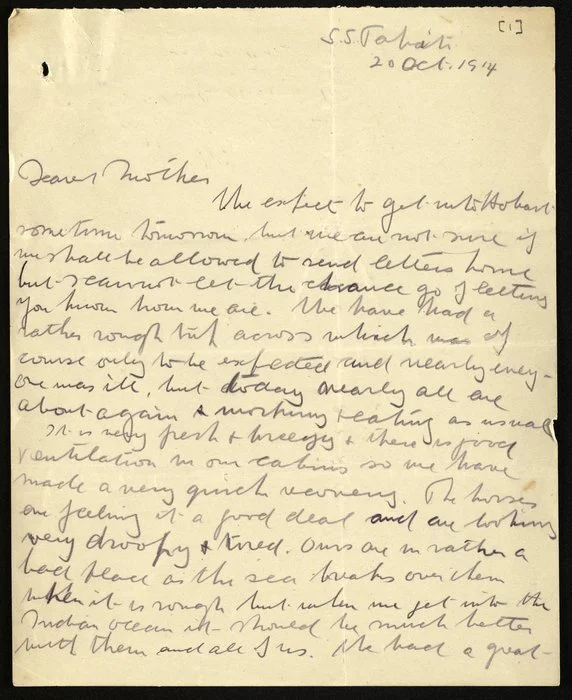 [1]
S.S. Tahiti
20 Oct. 1914
Dearest Mother
We expect to get into Hobart
sometime tomorrow, but we are not sure if
we shall be allowed to send letters home
but I cannot let the chance go of letting
you know how we are. We have had a
rather rough trip across which was of
course only to be expected and nearly every-
one was ill, but today nearly all are
about again & working & eating as usual
It is very fresh & breezy & there is good
ventilation in our cabins so we have
made a very quick recovery. The horses
are feeling it a good deal and are looking
very droopy & tired. Ours are in rather a
bad place as the sea breaks over them
when it is rough but when we get into the
Indian Ocean it should be much better
with them and all of us. We had a great